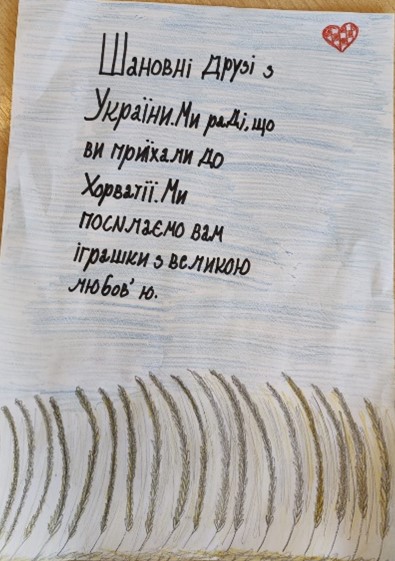 Шановні друзі з
України. Ми раді, що
ви приїхали до
Хорватії. Ми
посилаємо вам
іграшки з великою
любов'ю.